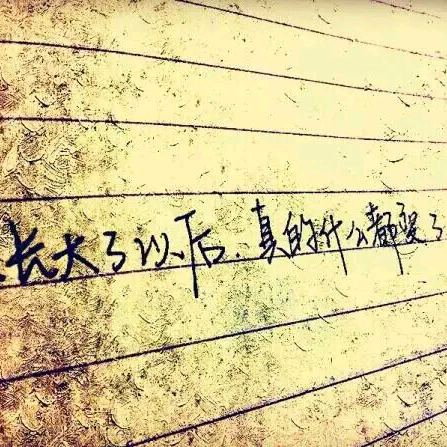 长大了以后、真的什么都变了